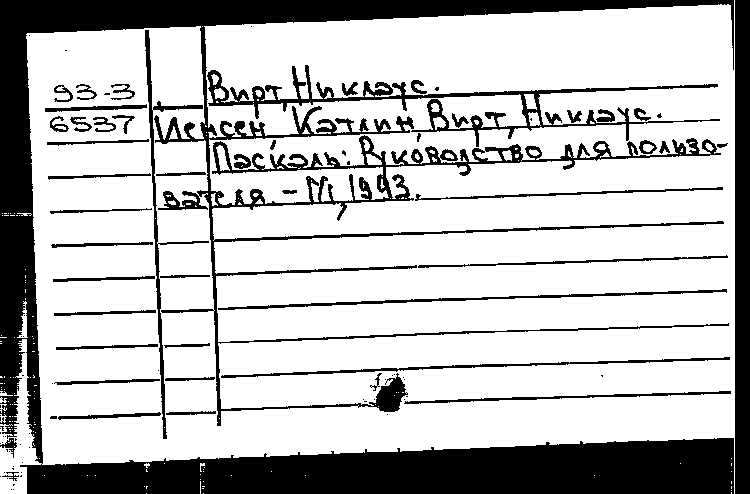 93-3 Вирт, Никлаус.
6537 Иенсен, Кэтлин, Вирт, Никлаус.
Паскаль: Руководство для пользо-
вателя. - М, 1993.